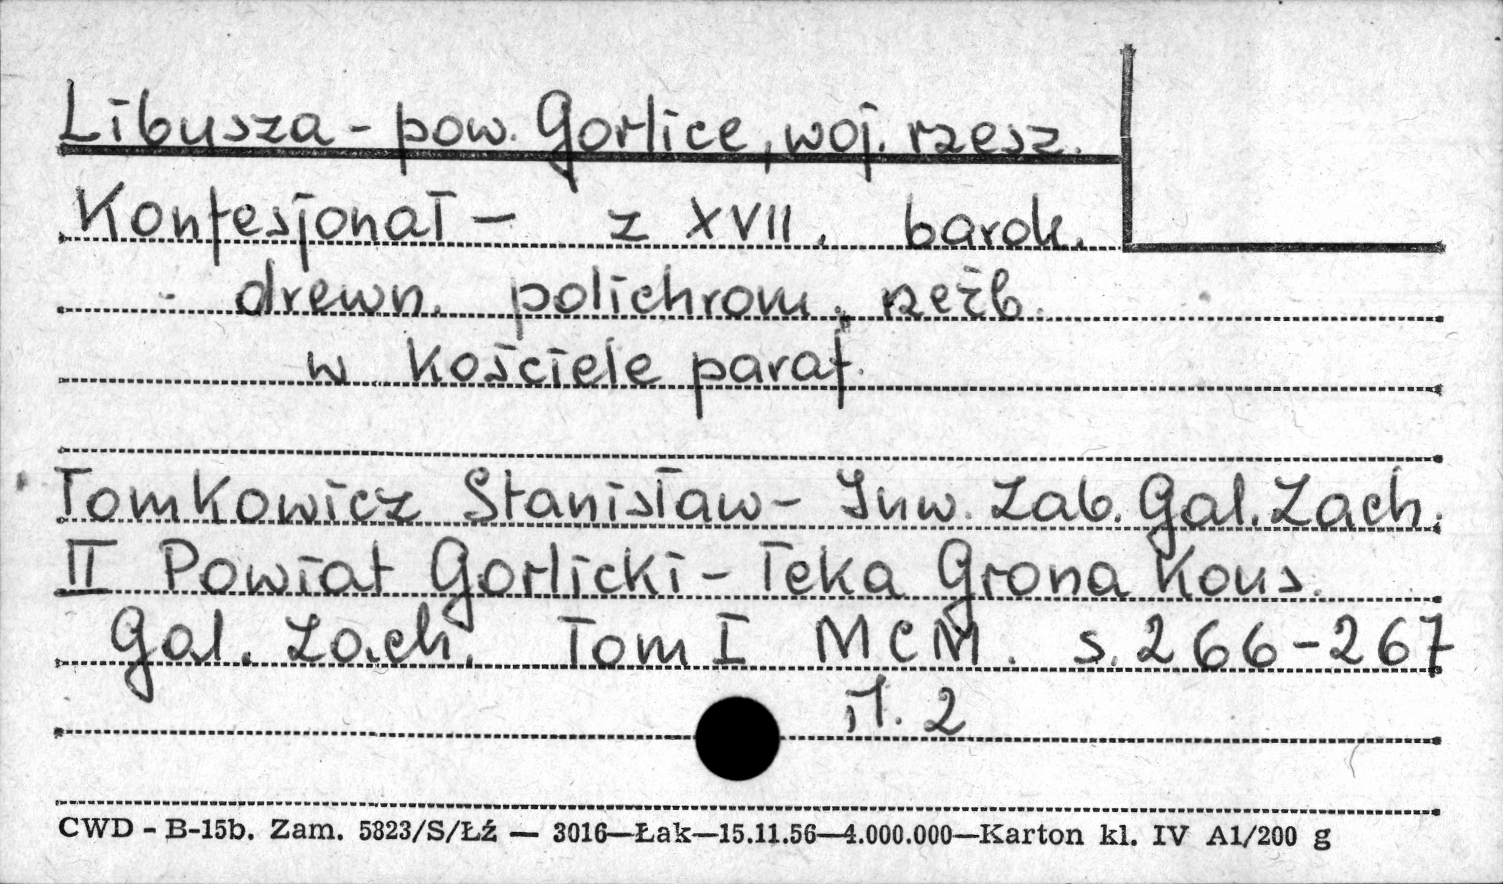 Libusza - pow. Gorlice, woj. rzesz.
Konfesjonał - z XVII. barok.
drewn. polichrom. rzeźb.
w kościele paraf.
Tomkowicz Stanisław - Inw. Zab. Gal. Zach.
II Powiat Gorlicki - Teka Grona Kons.
Gal. Zach. Tom I MCM. s. 266-267
il. 2
CWD - B-15b. Zam. 5823/S/Łź — 3016—Łak—15.11.56—4.000.000—Karton kl. IV A1/200 g